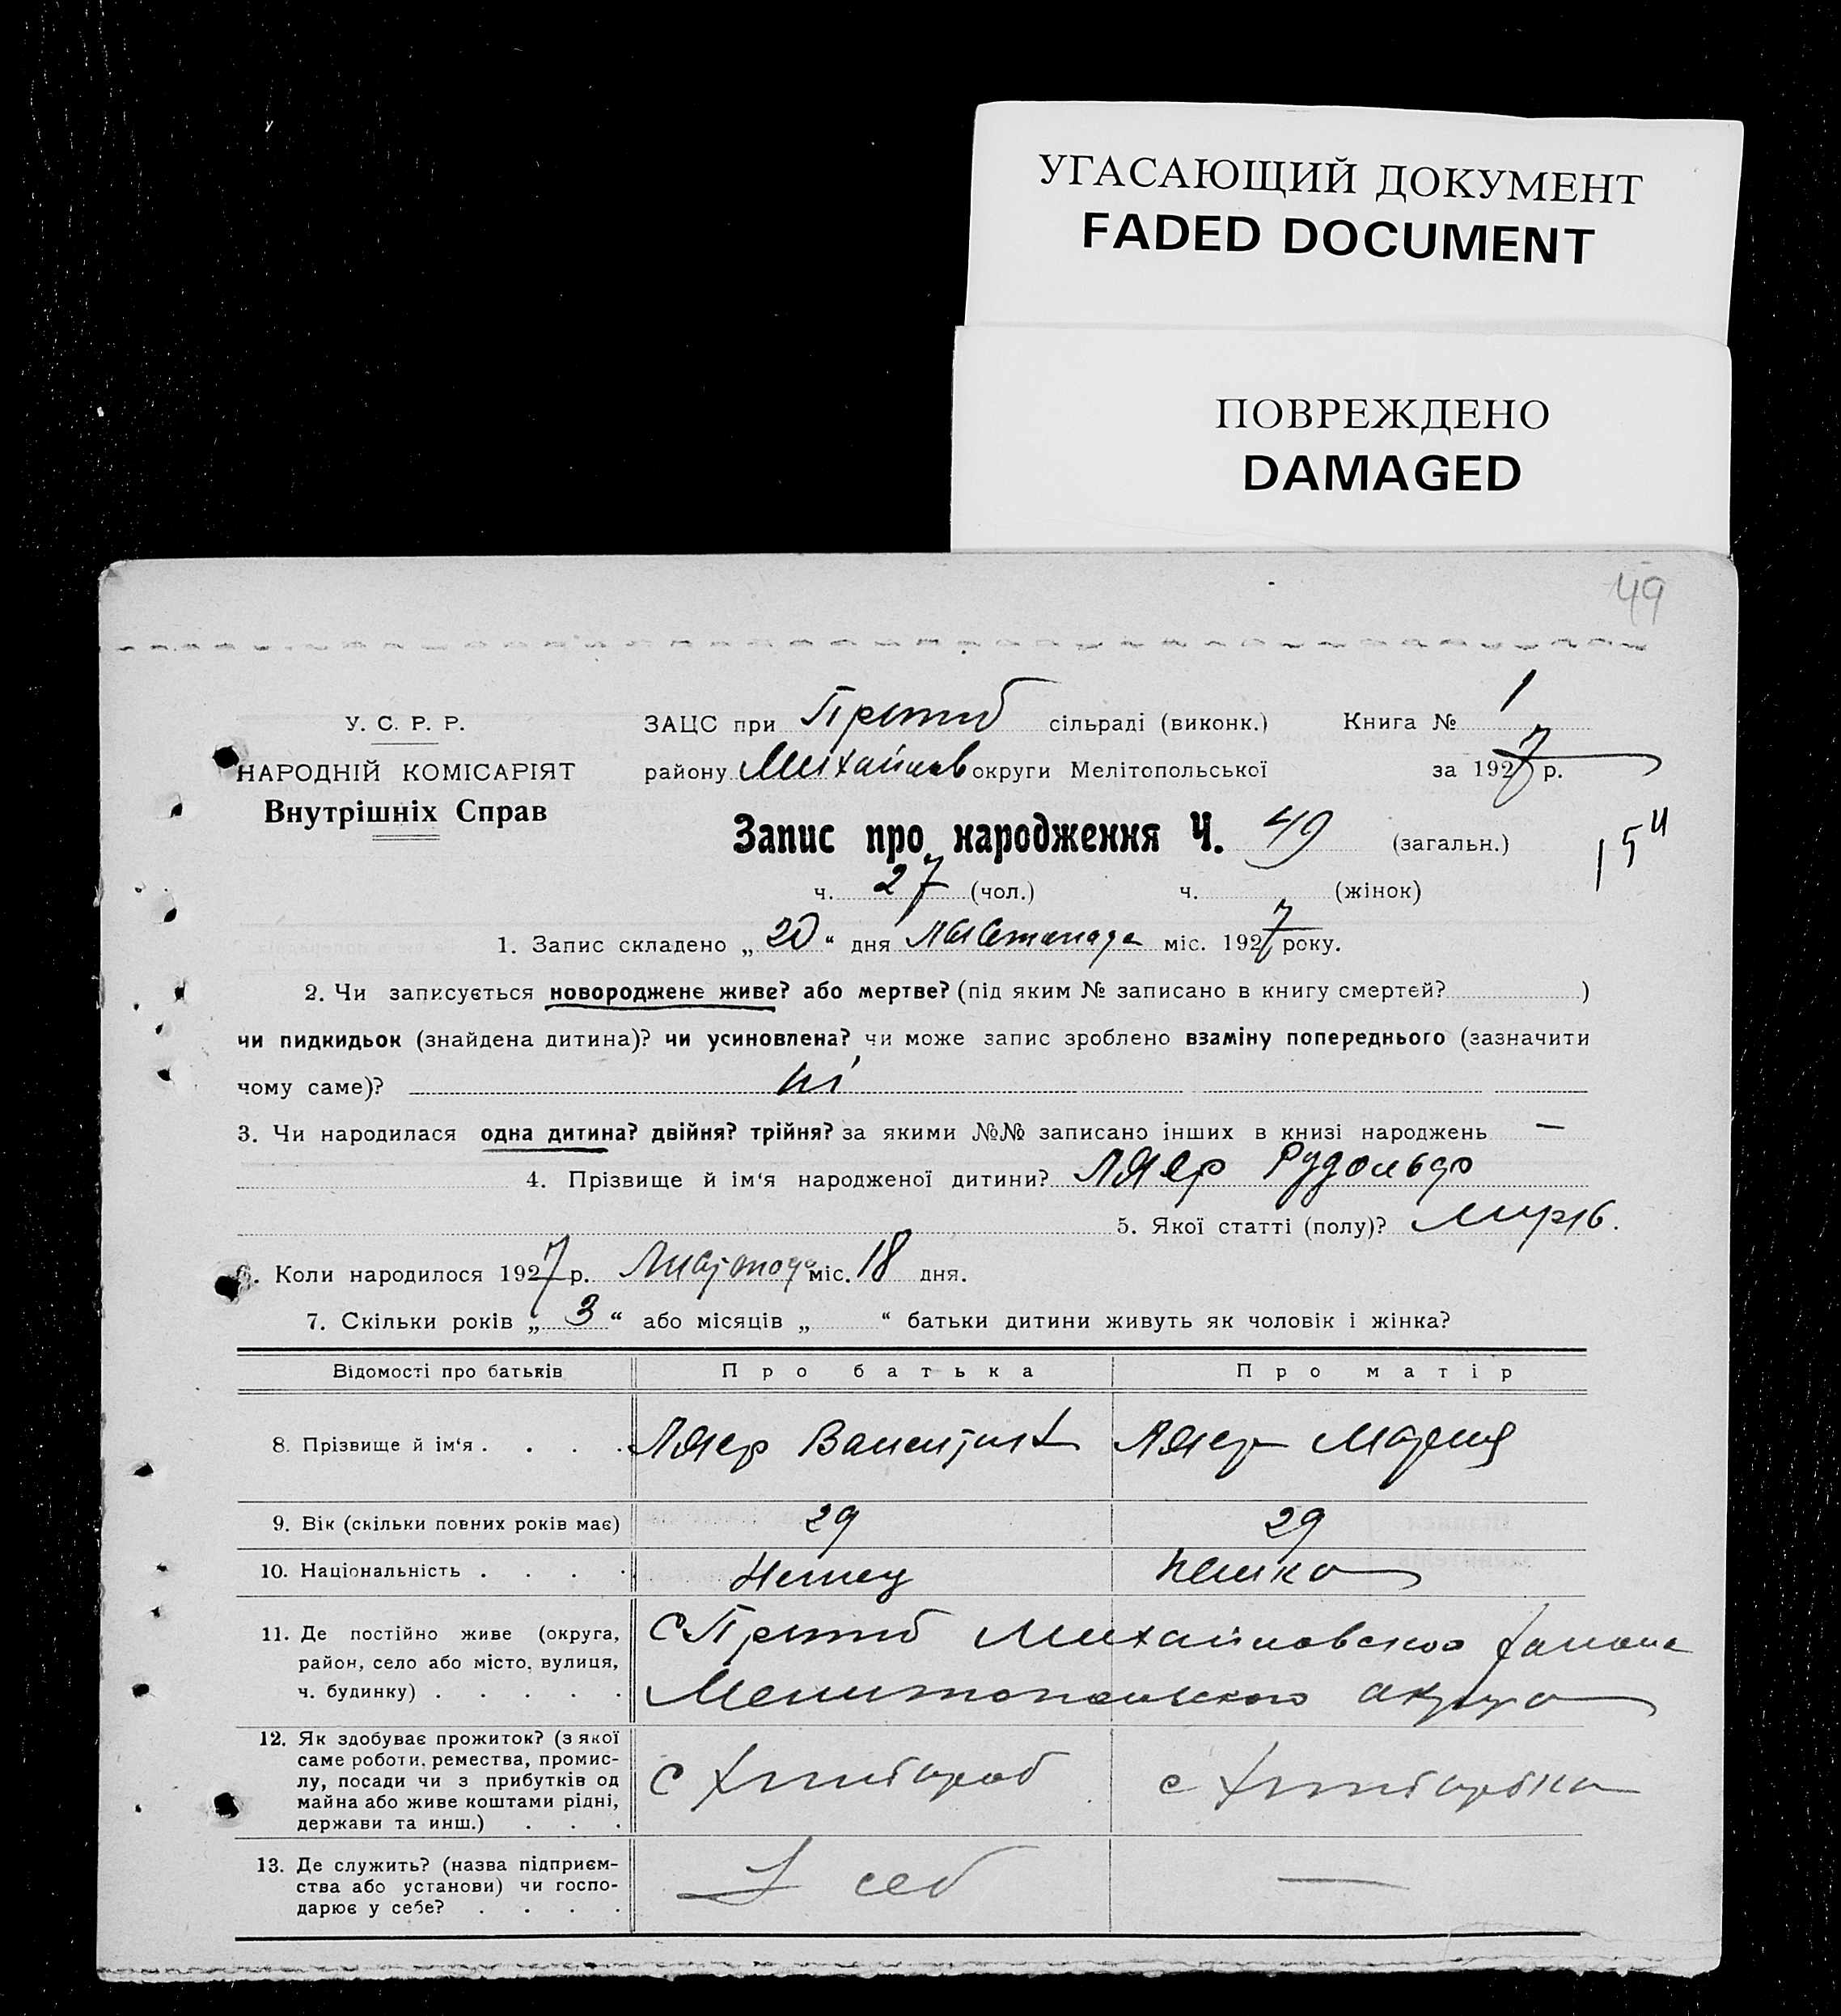 УГАСАЮЩИЙ ДОКУМЕНТ
FADED DOCUMENT
ПОВРЕЖДЕНО
DAMAGED
49
У. С. Р. Р.
НАРОДНІЙ КОМІСАРІЯТ
Внутрішніх Справ
ЗАЦС при Пришиб сільраді (виконк.) Книга № 1
району Михайлов округи Мелітопольської за 1927 р.
Запис про народження Ч. 49 (загальн.)
ч. 27 (чол.) ч. (жінок)
1. Запис складено „ 20 “ дня Листопада міс. 1927 року.
2. Чи записується новороджене живе? або мертве? (під яким № записано в книгу смертей? )
чи пидкидьок (знайдена дитина)? чи усиновлена? чи може запис зроблено взаміну попереднього (зазначити
чому саме)? ні
3. Чи народилася одна дитина? двійня? трійня? за якими №№ записано інших в книзі народжень —
4. Прізвище й ім‘я народженої дитини? Ляер Рудольф
5. Якої статті (полу)?
6. Коли народилося 1927 р. Листопада міс. 18 дня.
7. Скільки років „ 3 “ або місяців „ “ батьки дитини живуть як чоловік і жінка?
Відомості про батьків Про батька Про матір
8. Прізвище й ім‘я . . . . Ляер Валентин Ляер Мария
9. Вік (скільки повних років має) 29 29
10. Національність . . . . Немец Немка
11. Де постійно живе (округа, район, село або місто, вулиця, ч. будинку) . . . . . С Пришиб Михайловского района
Мелитопольского округа
12. Як здобуває прожиток? (з якої
саме роботи, ремества, промис-
лу, посади чи з прибутків од
майна або живе коштами рідні,
держави та инш.) . . . С Хлибороб с Хлиборобка
13. Де служить? (назва підприєм-
ства або установи) чи госпо-
дарює у себе? . . . . У себ —